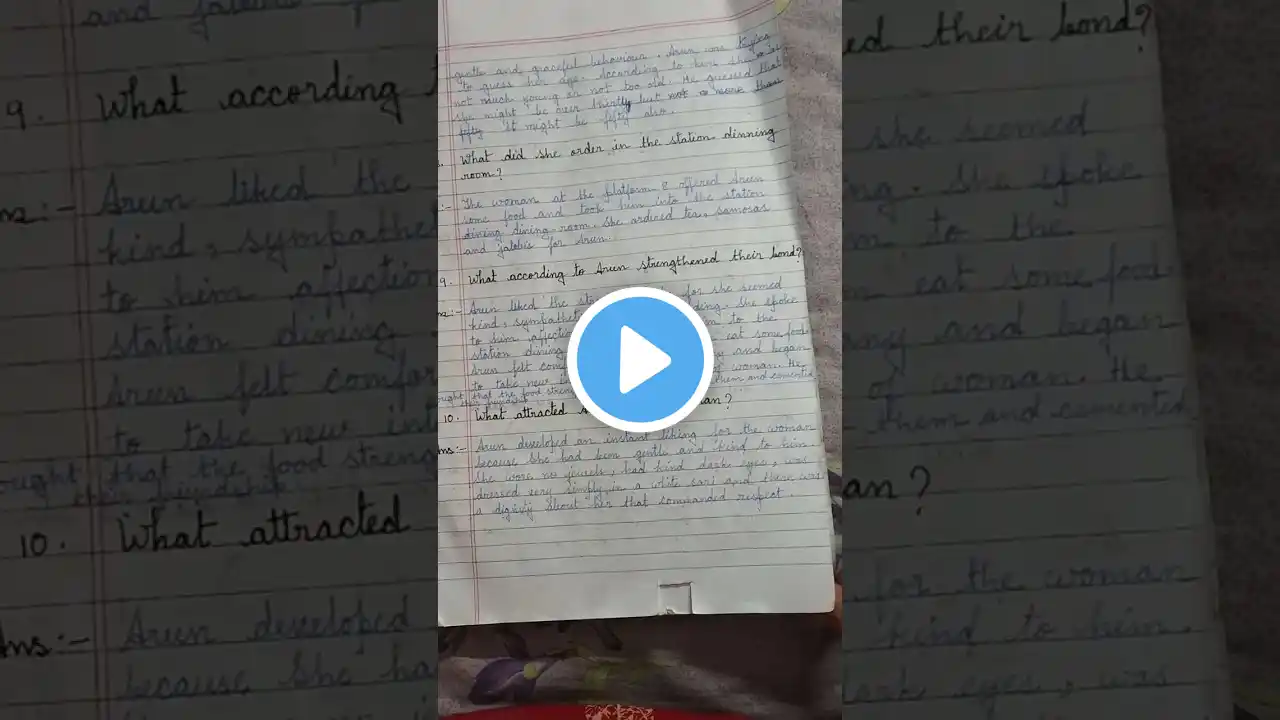 gentle and graceful behaviour. Arun was trying
to guess her age. According to him she was
not much young or not too old. He guessed that
she might be over thirty but not a more than
fifty it might be fifty also.
What did she order in the station dinning
room?
:- The woman at the platform offered Arun
some food and took him into the station
dining dining-room. She ordered tea, samosas
and jalebis for Arun.
9. What according to Arun strengthened their bond?
ns:- Arun liked the for she seemed
kind, sympathet ding. She spoke
to him affection m to the
station dining eat some food
Arun felt com y and began
to take new in of woman. He
ought that the food stren them and comented
their friendship
10. What attracted an?
ns:- Arun developed an instant liking for the woman
because she had been gentle and kind to him.
She wore no jewels, had kind dark eyes, was
dressed very simply in a white sari and there was
a dignity about her that commanded respect.